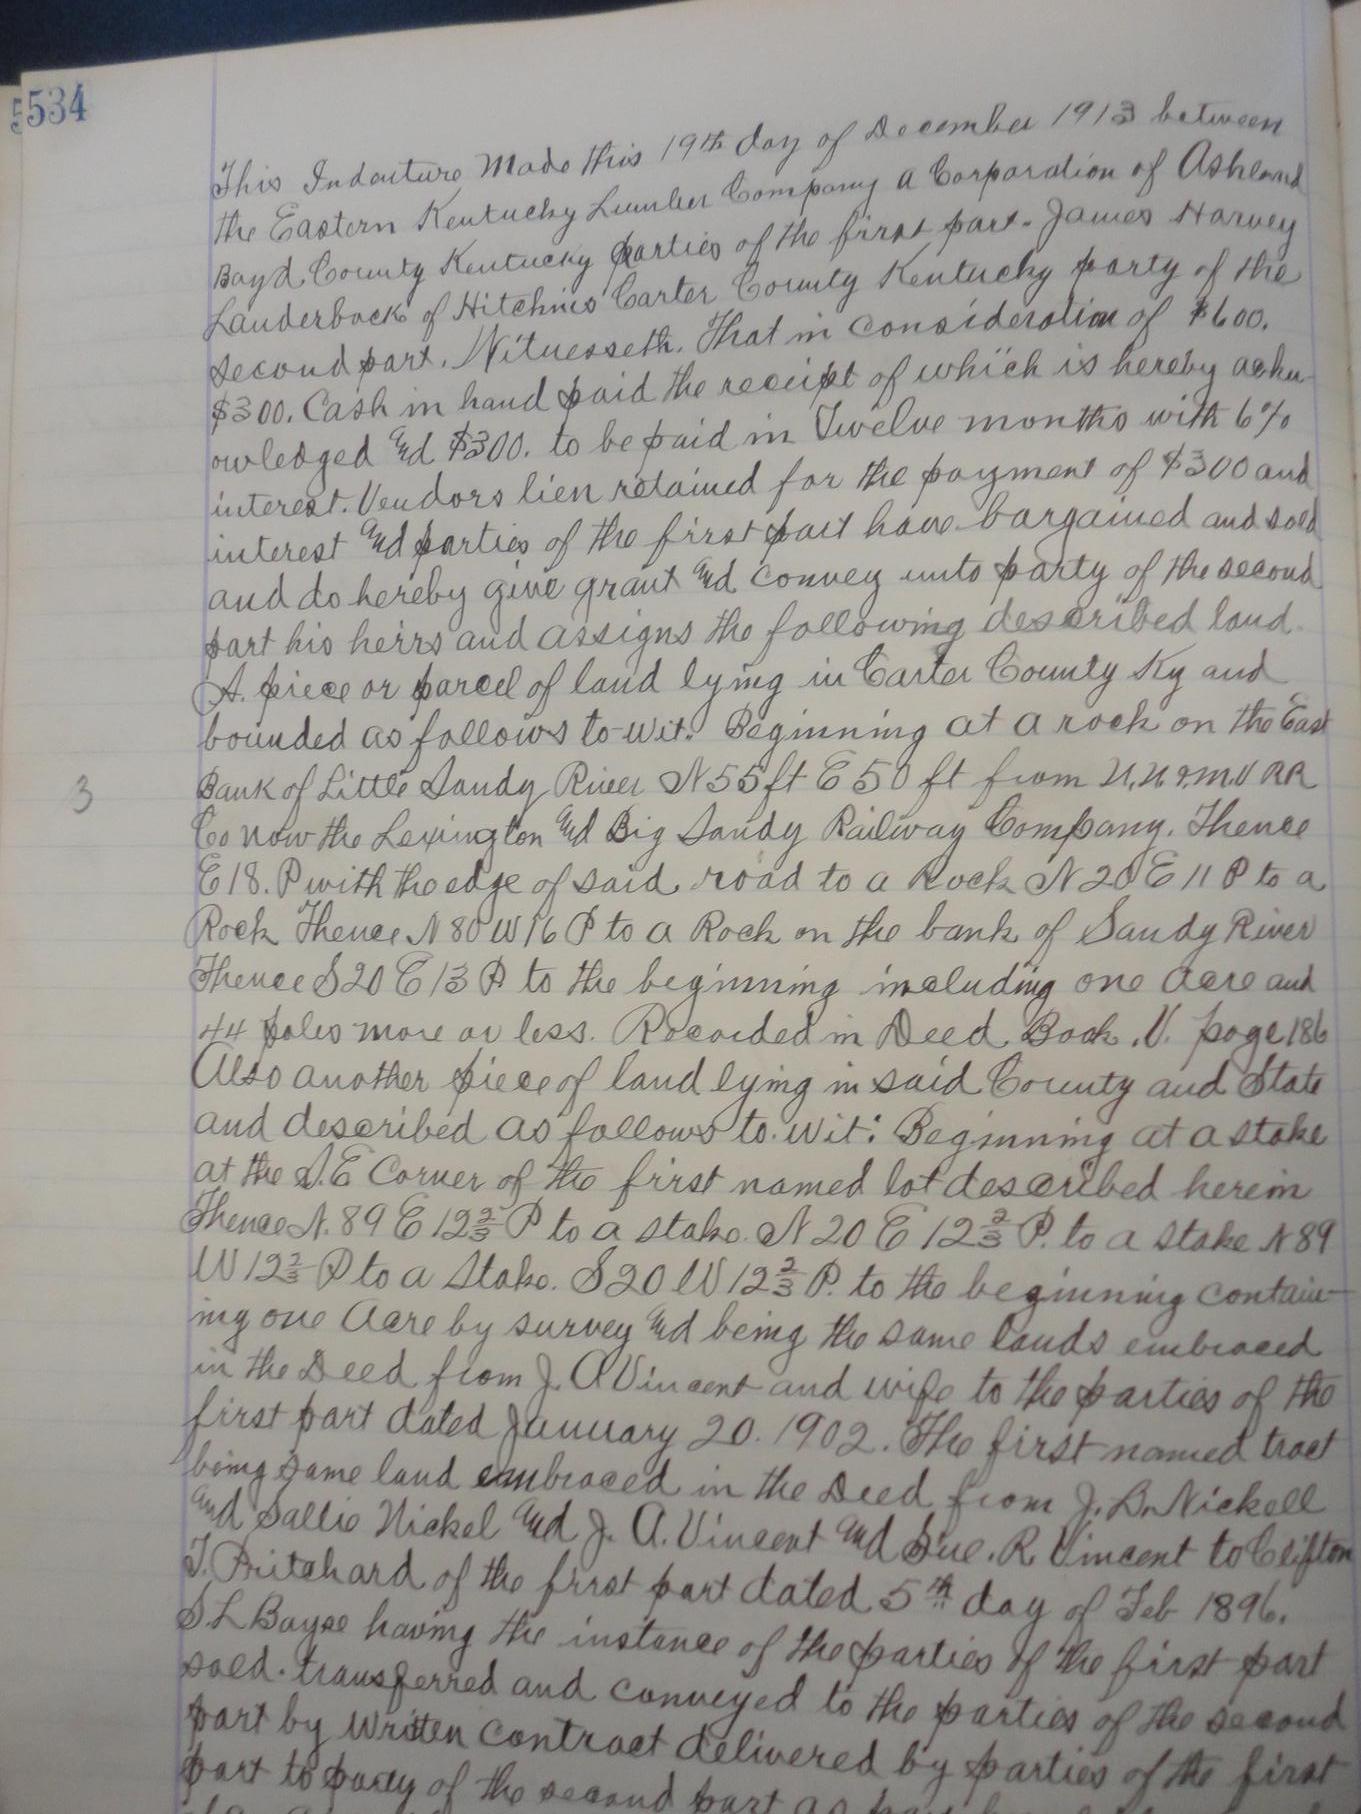 534
This Indenture Made this 19th day of December 1913 between
the Eastern Kentucky Lumber Company a Corporation of Ashland
Boyd County Kentucky parties of the first part. James Harvey
Lauderback of Hitchins Carter County Kentucky party of the
second part. Witnesseth. That in consideration of $600.
$300. Cash in hand paid the receipt of which is hereby ackn-
owledged and $300. to be paid in Twelve months with 6%
interest. Vendors lien retained for the payment of $300 and
interest and parties of the first part have bargained and sold
and do hereby give grant and convey unto party of the second
part his heirs and assigns the following described land.
A. piece or parcel of land lying in Carter County Ky and
bounded as follows to-wit. Beginning at a rock on the East
Bank of Little Sandy River N55ft E50 ft from RR
Co now the Lexington and Big Sandy Railway Company. Thence
E18. P with the edge of said road to a Rock N20 E 11 P to a
Rock Thence N80 W16 P to a Rock on the bank of Sandy River
Thence S20 E13 P to the beginning including one acre and
44 poles more or less. Recorded in Deed Book. V. page 186
Also another piece of land lying in said County and State
and described as follows to.wit: Beginning at a stake
at the S.E Corner of the first named lot described herein
Thence N. 89 E 12 2/3 P to a stake. N20 E 12 2/3 P. to a stake N89
W 12 2/3 P to a Stake. S20 W 12 2/3 P. to the beginning contain-
ing one Acre by survey and being the same lands embraced
in the Deed from J. A Vincent and wife to the parties of the
first part dated January 20. 1902. The first named tract
being same land embraced in the Deed from J. B. Nickell
and Sallie Nickel and J. A. Vincent and Sue. R. Vincent to Clifton
T. Pritchard of the first part dated 5th day of Feb 1896.
S L Bayse having the instance of the parties of the first part
sold. transferred and conveyed to the parties of the second
part by written contract delivered by parties of the first
part to party of the second part as part
3